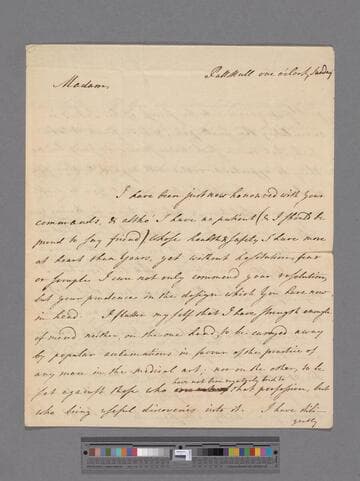 Pall Mall one o'clock, Sunday
Madam,
I have been just now honoured with your
commands, & altho I have no patient (& I should be
proud to say friend) whose health & safety I have more
at heart than yours, yet without hesitation, fear
or scruple I can not only commend your resolution,
but your prudence in the designe which you have now
in hand. I flatter my self that I have strength enough
of mind neither on the one hand, to be carryed away
by popular acclamations in favour of the practice of
any man in the medical art; nor on the other, to be
have not been regularly bred to
set against those who that profession, but
who bring useful discoveries into it. I have dili-
gently